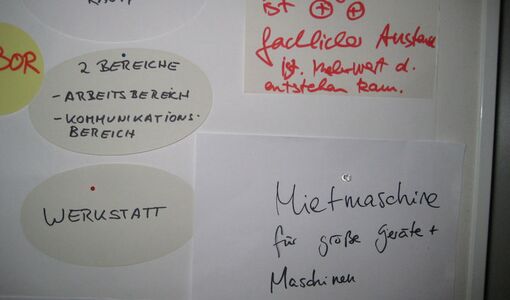 ist ⊕ ⊕
fachlicher
ist. Mehrwert d.
entstehen kann.
BOR
2 BEREICHE
- ARBEITSBEREICH
- KOMMUNIKATIONS-
BEREICH
WERKSTATT
Mietmaschine
für große Geräte +
Maschinen